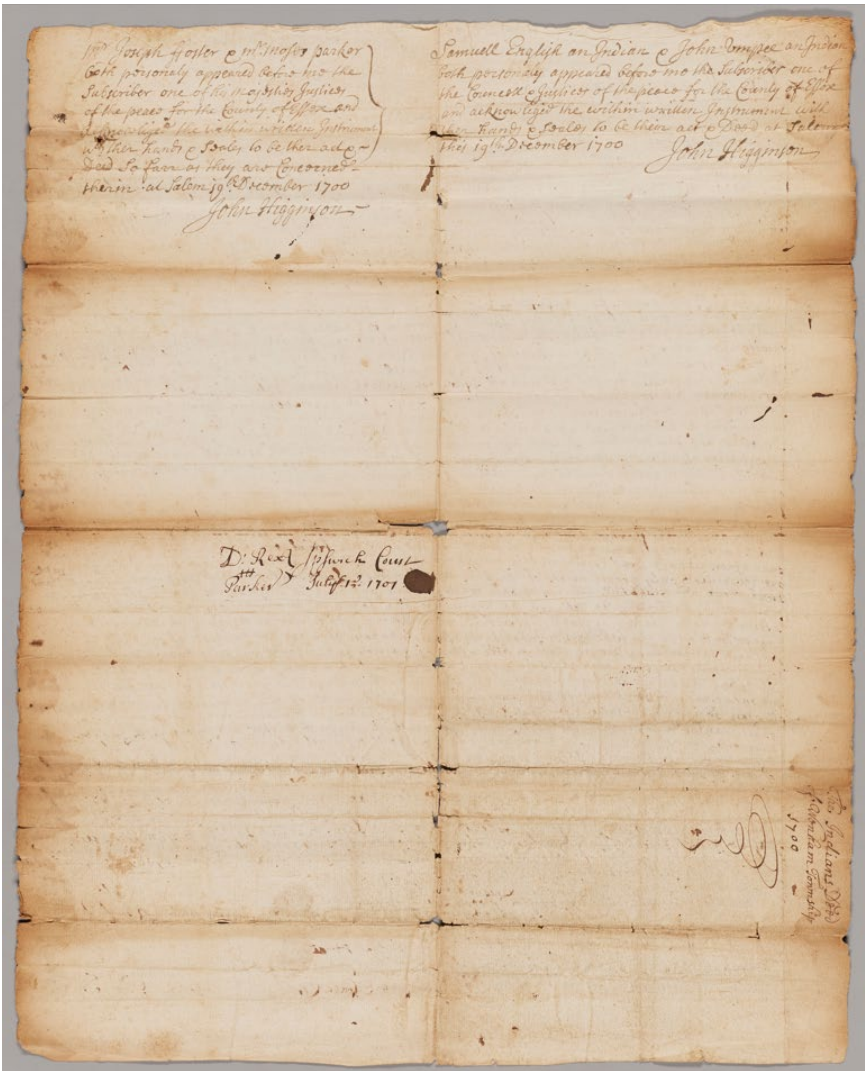 mr Joseph Foster & mr. Moses parker
both personaly appeared before me the
Subscriber one of his majesties Justices
of the peace for the County of Essex and
acknowledged the within written Instrument
with ther hands & Seales to be ther act &
Deed So farr as they are Concerned
therin at Salem 19th December 1700
John Higginson
Samuell English an Indian & John Umpee an Indian
both personaly appeared before me the Subscriber one of
the Councell & Justices of the peace for the County of Essex
and acknowliged the within written Instrument with
ther hands & Seales to be their act & Deed at Salem
this 19th December 1700
John Higginson
D. Rex Ipswich Court
Parker July 1701
Indians Deed
of Wenham Township
1700